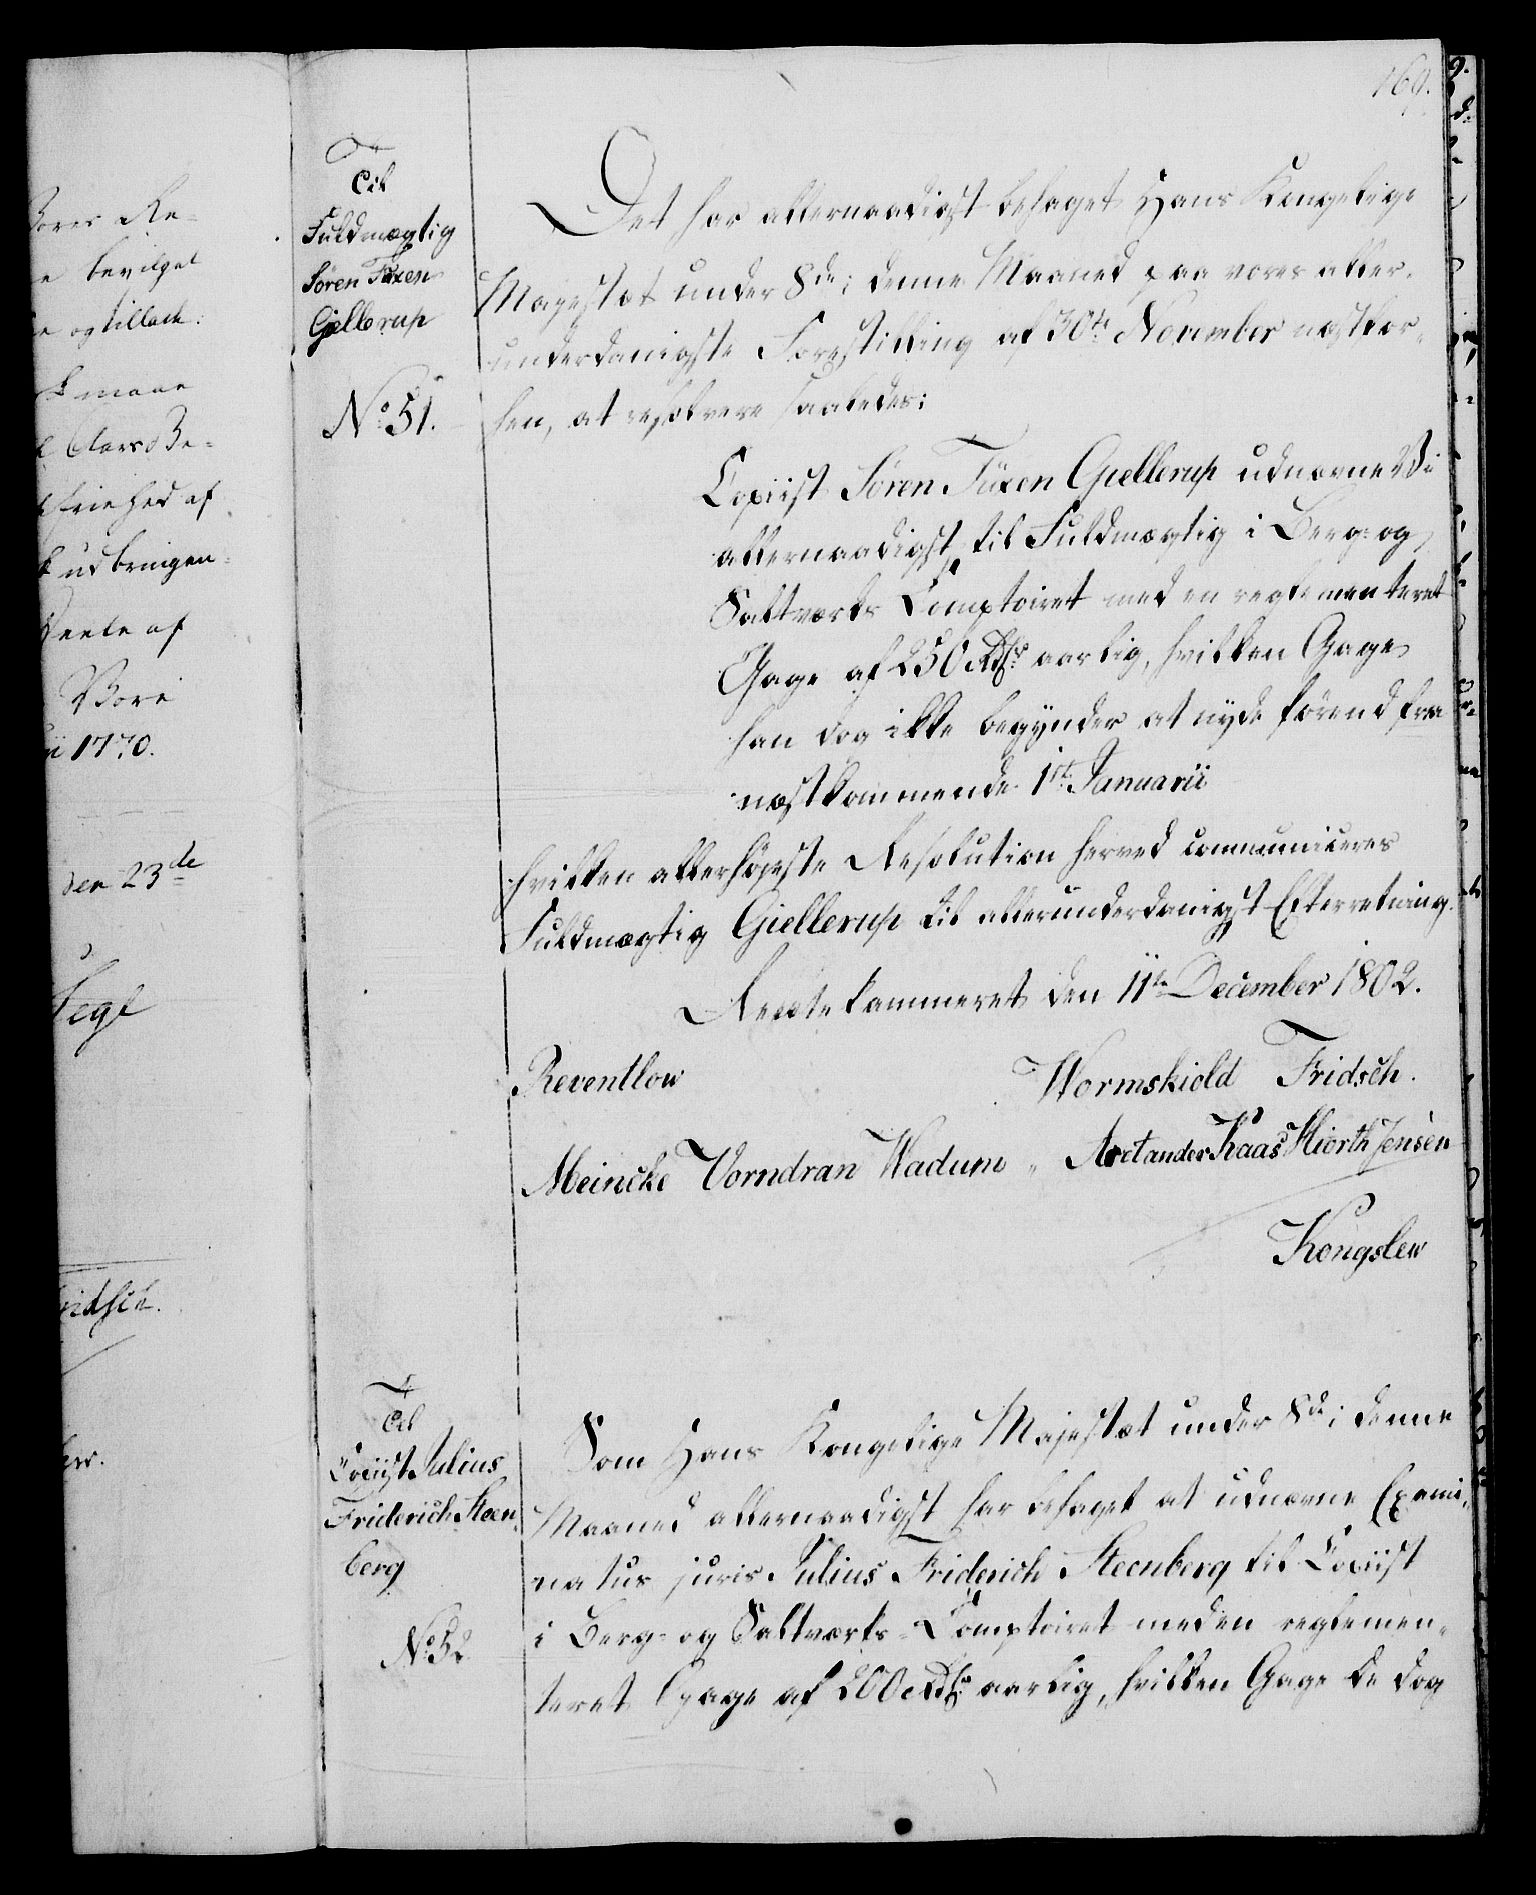 169.
Til
Fuldmægtig
Sören Tüxen
Gjellerup
No 51.
Det har allernaadigst behaget Hans Kongelige
Mayestæt under 8de i denne Maaned paa vores aller-
underdanigste Forestilling af 30te November næstfor-
hen, at resolvere saaledes:
Copiist Sören Tüxen Giellerup udnævne Vi
allernaadigst til Fuldmægtig i Berg- og
Saltværks Comptoiret med en reglementeret
Gage af 250 Rdlr aarlig, hvilken Gage
han dog ikke begynder at nyde förend fra
næstkommende 1ste Januarii
hvilken allerhöjeste Resolution herved communiceres
Fuldmægtig Giellerup til allerunderdanigst Efterretning.
Rentekammeret den 11te December 1802.
Reventlow
Wormskiold Fridsch.
Meincke Vorndran Wadum " Arctander Kaas Hiorth Jensen
Kongslew
Til
Copiist Julius
Friderich Steen-
berg
No 52
Som Hans Kongelige Majestæt under 8de i denne
Maaned allernaadigst har behaget at udnævne Exami-
natus juris Julius Friderich Steenberg til Copiist
i Berg- og Saltværks-Comptoiret med en reglemen-
teret Gage af 200 Rdlr aarlig, hvilken Gage de dog
Vores Re-
bevilget
og tillade:
maae
Aars Be-
friehed af
udbringen-
Deele af
Vore
1770.
den 23de